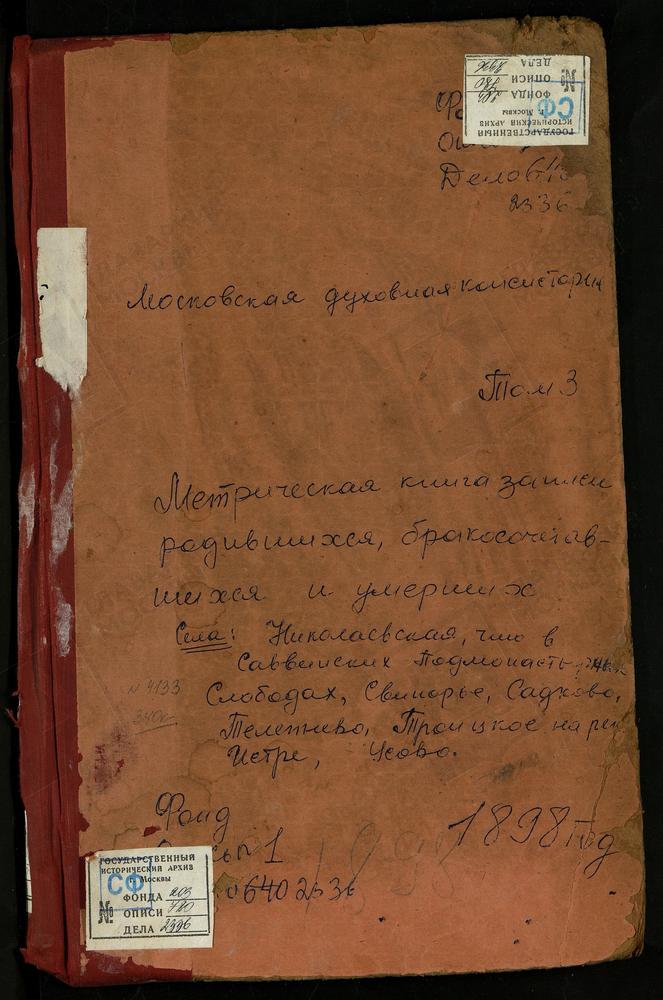 ГОСУДАРСТВЕННЫЙ
ИСТОРИЧЕСКИЙ АРХИВ
г. Москвы
СФ
№
ФОНДА 203
ОПИСИ 780
ДЕЛА
Дело
2336
Московская духовная консистория
Том 3
Метрическая книга записи
родившихся, бракосочетав-
шихся и умерших
Села: Николаевская, что в
Саввинских Подмонастырских
Слободах, Свинорье, Садково,
Телепнево, Троицкое на реке
Истре, Усово.
N 4133
Фонд
1898 год
1
640 2336
ГОСУДАРСТВЕННЫЙ
ИСТОРИЧЕСКИЙ АРХИВ
г. Москвы
СФ
№
ФОНДА 203
ОПИСИ 780
ДЕЛА